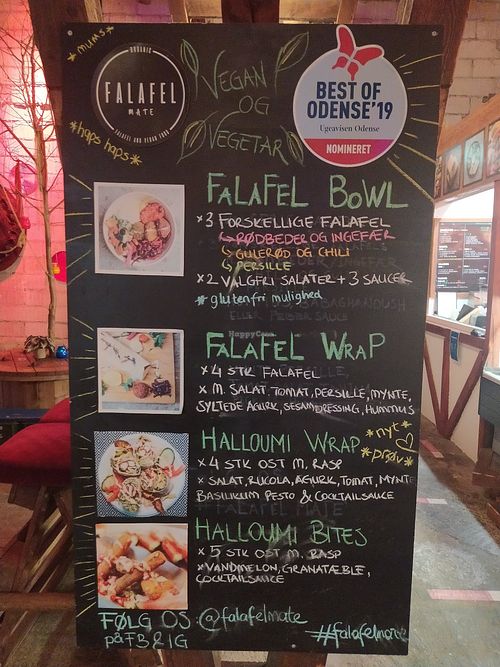 *mums*
ORGANIC
FALAFEL
MATE
FALAFEL AND VEGAN FOOD
*haps haps*
VEGAN
OG
VEGETAR
BEST OF
ODENSE'19
Ugeavisen Odense
NOMINERET
FALAFEL BOWL
*3 FORSKELLIGE FALAFEL
↳RØDBEDER OG INGEFÆR
↳GULERØD OG CHILI
↳PERSILLE
*2 VALGFRI SALATER + 3 SAUCER
* glutenfri mulighed
FALAFEL WRAP
*4 STK FALAFEL
* M. SALAT, TOMAT, PERSILLE, MYNTE,
SYLTEDE AGURK, SESAMDRESSING, HUMMUS
HALLOUMI WRAP
*nyt*
*prøv*
*4 STK OST M. RASP
* SALAT, RUCOLA, AGURK, TOMAT, MYNTE
BASILIKUM PESTO & COCKTAILSAUCE
HALLOUMI BITES
*5 STK OST M. RASP
*VANDMELON, GRANATÆBLE,
COCKTAILSAUCE
FØLG OS @falafelmate
på FB & IG